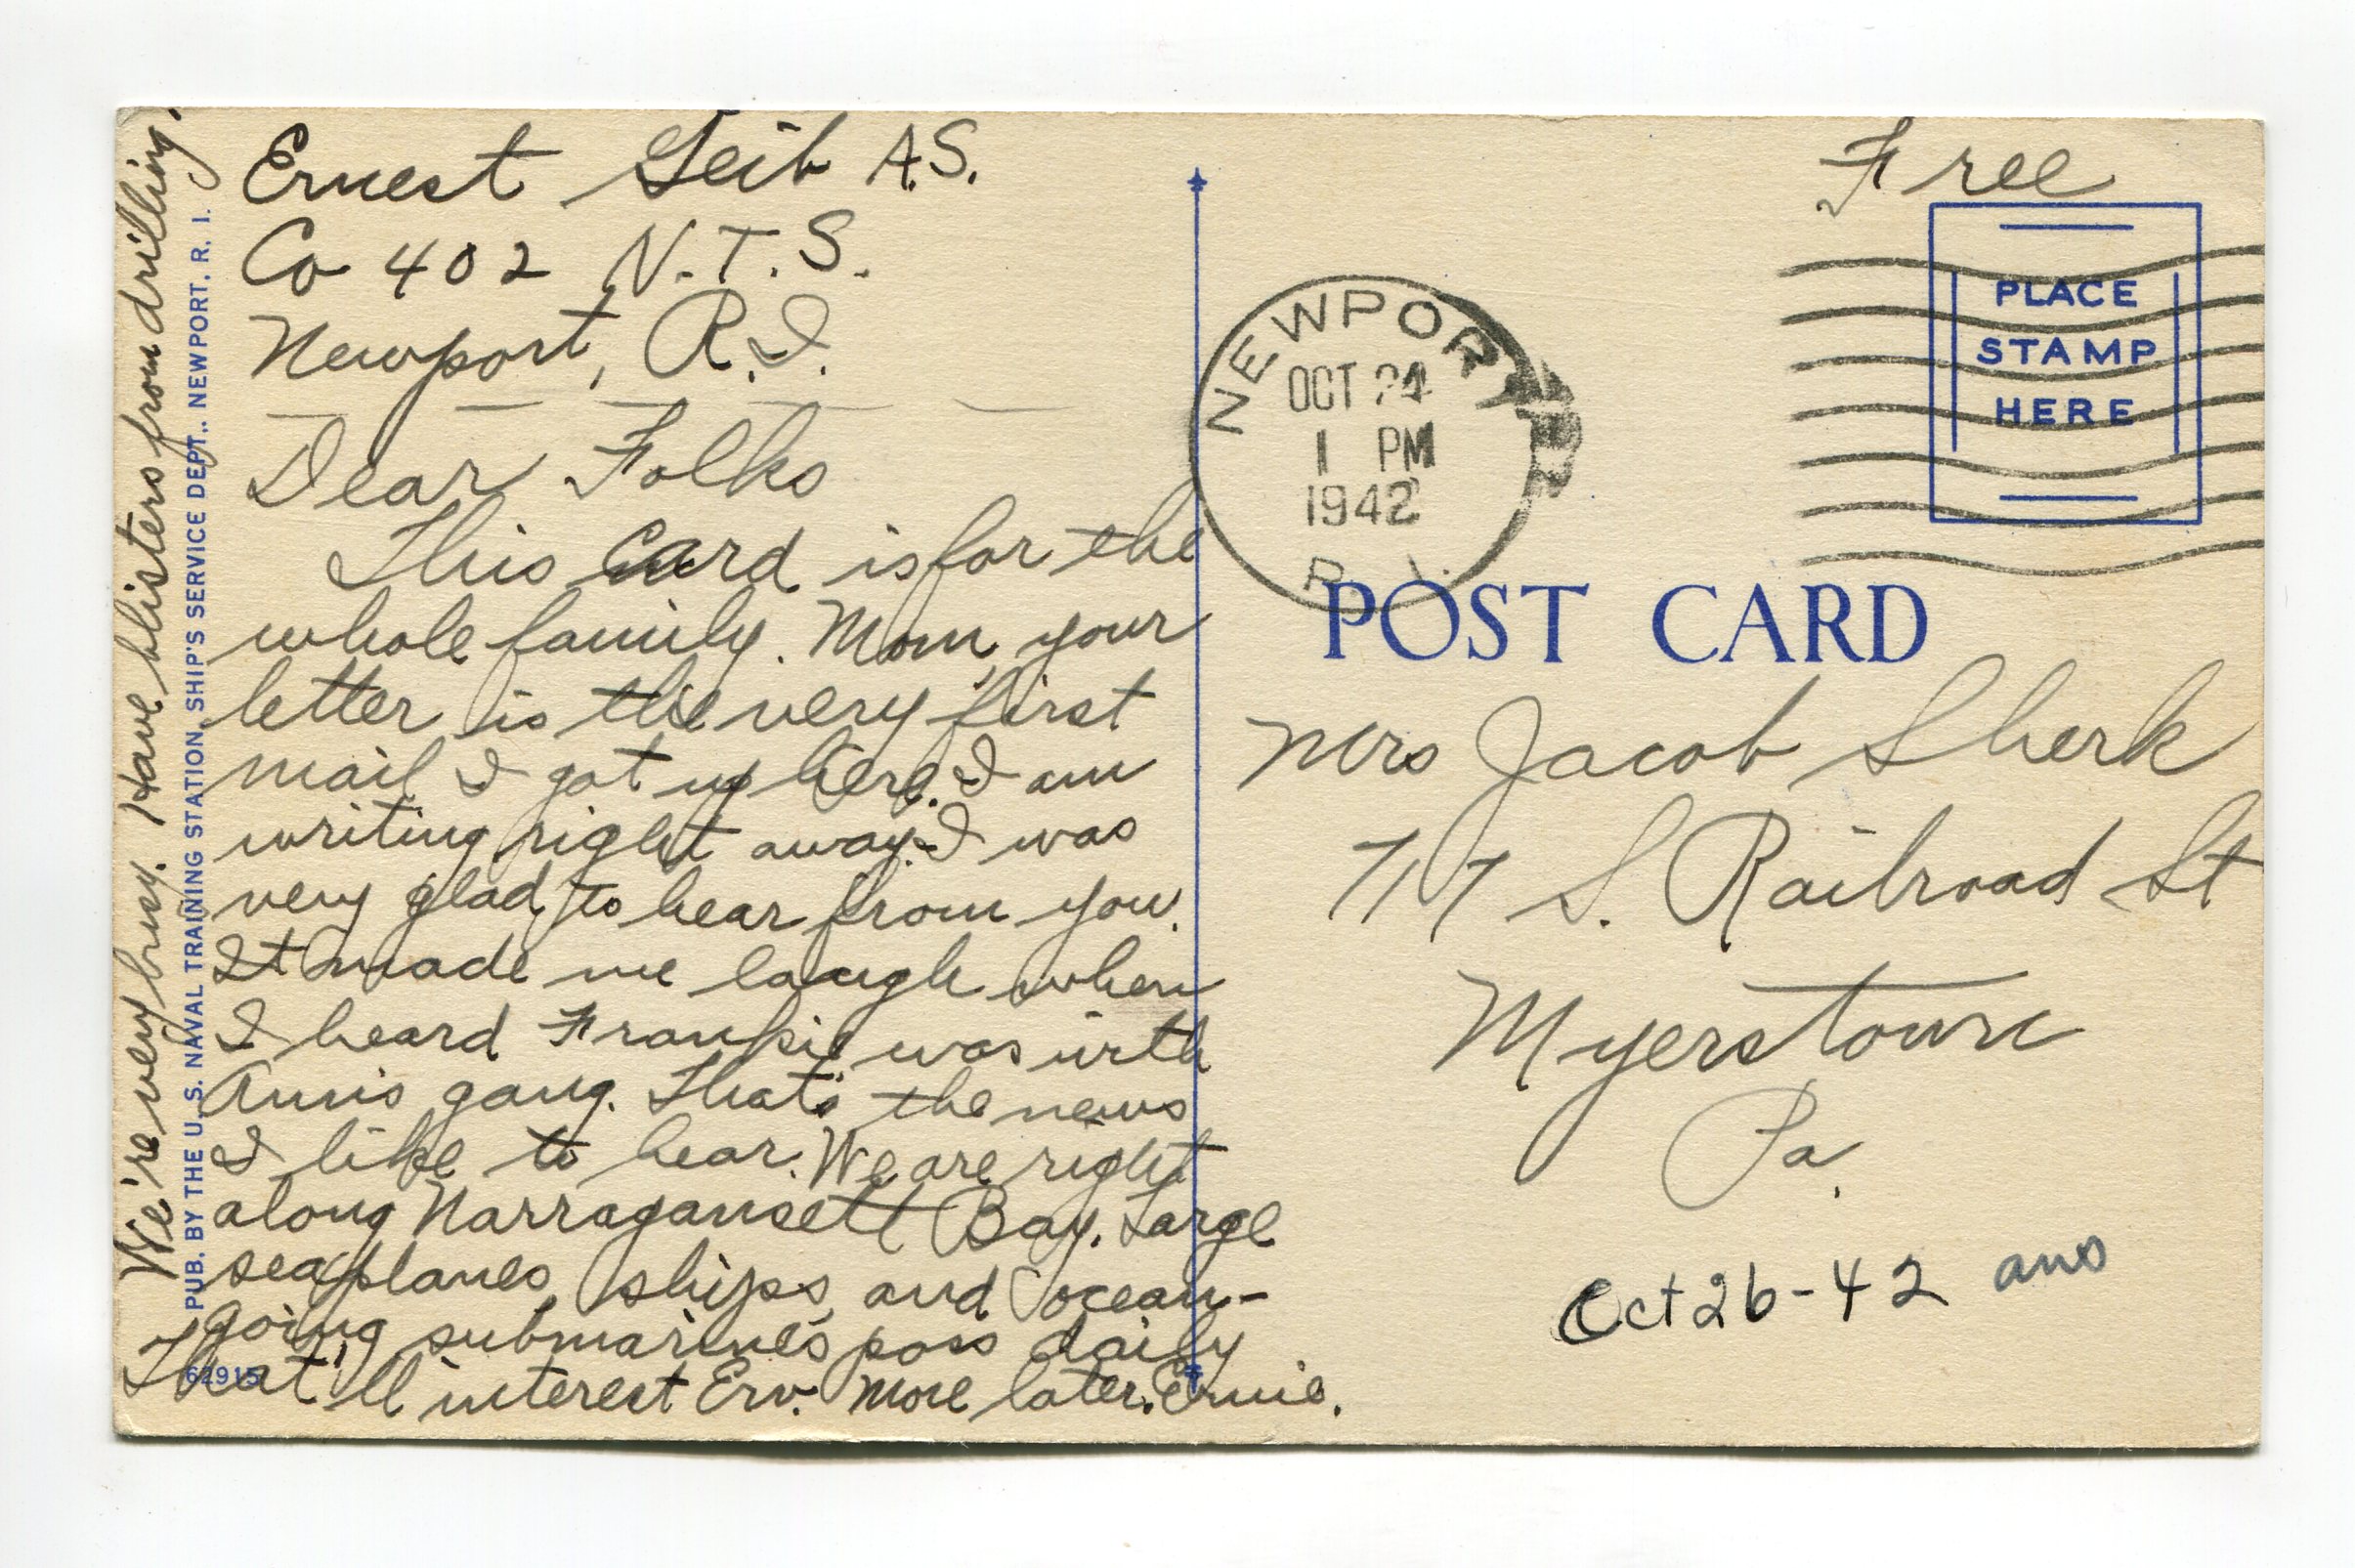 Ernest Geib A.S.
Co 402 N.T.S.
Newport, R.I.
Dear Folks
This card is for the
whole family. Mom, your
letter is the very first
mail I got up here. I am
writing right away. I was
very glad to hear from you.
It made me laugh when
I heard was with
Ann's gang. That's the news
I like to hear. We are right
along Narragansett Bay. Large
seaplanes, ships, and ocean-
going submarines pass daily
That'll interest Erv. More later. Ernie.
We're very busy. Have blisters from drilling.
PUB. BY THE U.S. NAVAL TRAINING STATION, SHIP'S SERVICE DEPT., NEWPORT, R. I.
62915
Free
PLACE
STAMP
HERE
NEWPORT
OCT 24
1 PM
1942
R. I.
POST CARD
Mrs Jacob Sherk
717 S. Railroad St
Myerstown
Pa.
Oct 26-42 ans